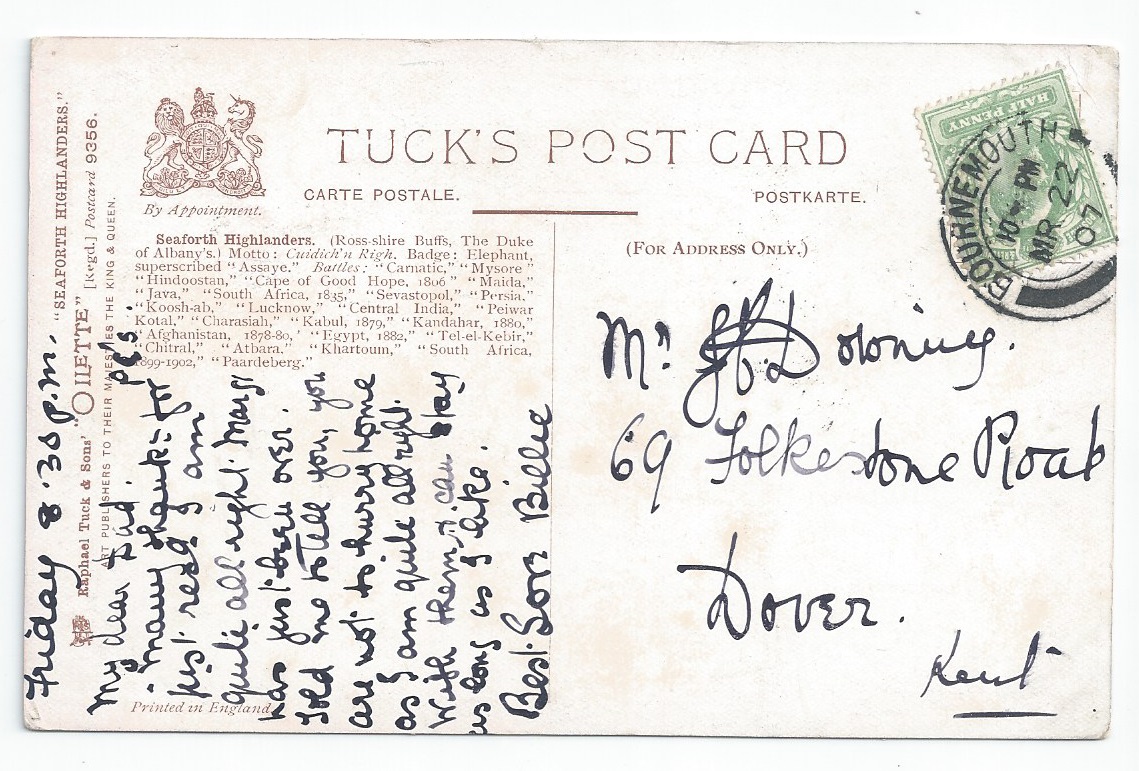 TUCK'S POST CARD
CARTE POSTALE.
POSTKARTE.
By Appointment.
(FOR ADDRESS ONLY.)
Seaforth Highlanders. (Ross-shire Buffs, The Duke
of Albany's.) Motto: Cuidich'n Righ. Badge: Elephant,
superscribed "Assaye." Battles: "Carnatic," "Mysore"
"Hindoostan," "Cape of Good Hope, 1806" "Maida,"
"Java," "South Africa, 1835," "Sevastopol," "Persia."
"Koosh-ab," "Lucknow," "Central India," "Peiwar
Kotal," "Charasiah," "Kabul, 1879," "Kandahar, 1880,"
"Afghanistan, 1878-80," "Egypt, 1882," "Tel-el-Kebir,"
"Chitral," "Atbara." "Khartoum," "South Africa,
1899-1902," "Paardeberg."
"SEAFORTH HIGHLANDERS."
Raphael Tuck & Sons' "OILETTE" [Regd.] Postcard 9356.
ART PUBLISHERS TO THEIR MAJESTIES THE KING & QUEEN.
Printed in England.
HALF PENNY
BOURNEMOUTH
PM
MR 22
07
Mr Downing.
69 Folkestone Road
Dover.
Kent
Friday 8.30 p.m.
My dear Dad.
many thanks for pcs.
just recd I am
quite all right Marge
has just been over.
told me to tell you, you
are not to hurry home
as I am quite all right
with them & can stay
as long as I like.
Best Son Billie